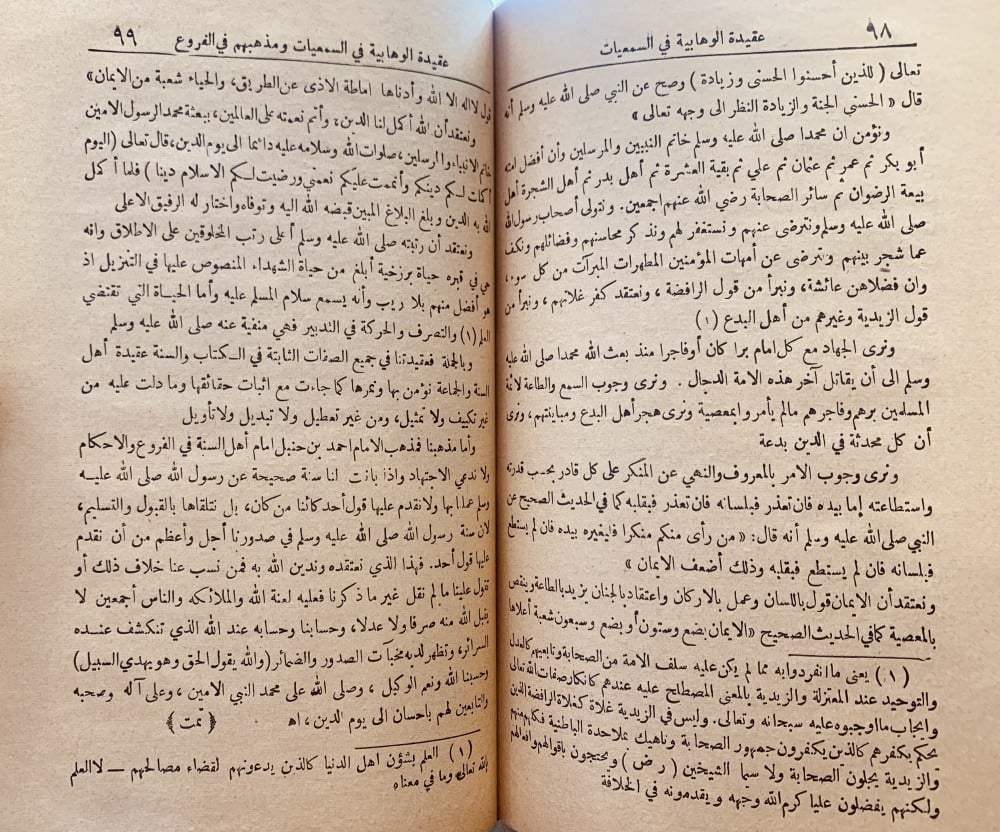 ٩٨
عقيدة الوهابية في السمعيات
تعالى ( للذين أحسنوا الحسنى وزيادة ) وصح عن النبي صلى الله عليه وسلم أنه
قال « الحسنى الجنة والزيادة النظر الى وجه تعالى »
ونؤمن ان محمدا صلى الله عليه وسلم خاتم النبيين والمرسلين وأن أفضل امته
أبو بكر ثم عمر ثم عثمان ثم علي ثم بقية العشرة ثم أهل بدر ثم أهل الشجرة أهل
بيعة الرضوان ثم سائر الصحابة رضي الله عنهم اجمعين. ونتولى أصحاب رسول الله
صلى الله عليه وسلم ونترضى عنهم ونستغفر لهم ونذكر محاسنهم وفضائلهم ونكف
عما شجر بينهم ونترضى عن أمهات المؤمنين المطهرات المبرآت من كل سوء،
وان فضلاهن عائشة، ونبرأ من قول الرافضة ، ونعتقد كفر غلاتهم ، ونبرأ من
قول الزيدية وغيرهم من أهل البدع (١)
ونرى الجهاد مع كل امام برا كان أو فاجرا منذ بعث الله محمدا صلى الله عليه
وسلم الى أن يقاتل آخر هذه الامة الدجال . ونرى وجوب السمع والطاعة لائمة
المسلمين برهم وفاجرهم مالم يأمروا بمعصية ونرى هجر أهل البدع ومباينتهم، ونرى
أن كل محدثة في الدين بدعة
ونرى وجوب الامر بالمعروف والنهي عن المنكر على كل قادر بحسب قدرته
واستطاعته إما بيده فان تعذر فبلسانه فان تعذر فبقلبه كما في الحديث الصحيح عن
النبي صلى الله عليه وسلم أنه قال: « من رأى منكم منكرا فليغيره بيده فان لم يستطع
فبلسانه فان لم يستطع فبقلبه وذلك أضعف الايمان »
ونعتقد أن الايمان قول باللسان وعمل بالاركان واعتقاد بالجنان يزيد بالطاعة وينقص
بالمعصية كما في الحديث الصحيح «الايمان بضع وستون أو بضع وسبعون شعبة أعلاها
(١) يعني ما انفردوا به مما لم يكن عليه سلف الامة من الصحابة وتابعيهم كالعدل
والتوحيد عند المعتزلة والزيدية بالمعنى المصطلح عليه عندهم كانكار صفات الله تعالى
وايجاب ما اوجبوه عليه سبحانه وتعالى. وليس في الزيدية غلاة كغلاة الرافضة الذين
يحكم بكفرهم كالذين يكفرون جمهور الصحابة وناهيك بملاحدة الباطنية فكلهم منهم
والزيدية يجلون الصحابة ولا سيما الشيخين ( رض ) ويحتجون باقوالهم وافعالهم
ولكنهم يفضلون عليا كرم الله وجهه ويقدمونه في الخلافة
عقيدة الوهابية في السمعيات ومذهبهم في الفروع
٩٩
قول لا اله الا الله وأدناها اماطة الاذى عن الطريق، والحياء شعبة من الايمان»
ونعتقد أن الله أكمل لنا الدين، وأتم نعمته على العالمين، ببعثة محمد الرسول الامين
خاتم الانبياء والمرسلين ، صلوات الله وسلامه عليه دائما الى يوم الدين، قال تعالى (اليوم
أكملت لكم دينكم وأتممت عليكم نعمتي ورضيت لكم الاسلام دينا ) فلما أكمل
الله به الدين وبلغ البلاغ المبين قبضه الله اليه وتوفاه واختار له الرفيق الاعلى
ونعتقد أن رتبته صلى الله عليه وسلم أعلى رتب المخلوقين على الاطلاق وانه
حي في قبره حياة برزخية أبلغ من حياة الشهداء المنصوص عليها في التنزيل اذ
هو أفضل منهم بلا ريب وأنه يسمع سلام المسلم عليه وأما الحياة التي تقتضي
العلم (١) والتصرف والحركة في التدبير فهي منفية عنه صلى الله عليه وسلم
وبالجملة فعقيدتنا في جميع الصفات الثابتة في الكتاب والسنة عقيدة أهل
السنة والجماعة نؤمن بها ونمرها كما جاءت مع اثبات حقائقها وما دلت عليه من
غير تكييف ولا تمثيل، ومن غير تعطيل ولا تبديل ولا تأويل
وأما مذهبنا فمذهب الامام احمد بن حنبل امام أهل السنة في الفروع والاحكام
ولا ندعي الاجتهاد واذا بانت لنا سنة صحيحة عن رسول الله صلى الله عليه
وسلم عملنا بها ولا نقدم عليها قول أحد كائنا من كان، بل نتلقاها بالقبول والتسليم،
لأن سنة رسول الله صلى الله عليه وسلم في صدورنا أجل وأعظم من أن نقدم
عليها قول أحد. فهذا الذي نعتقده وندين الله به فمن نسب عنا خلاف ذلك أو
تقول علينا ما لم نقل غير ما ذكرنا فعليه لعنة الله والملائكة والناس أجمعين لا
يقبل الله منه صرفا ولا عدلا، وحسابنا وحسابه عند الله الذي تنكشف عنده
السرائر، وتظهر لديه مخبآت الصدور والضمائر (والله يقول الحق وهو يهدي السبيل)
وحسبنا الله ونعم الوكيل ، وصلى الله على محمد النبي الامين ، وعلى آله وصحبه
والتابعين لهم باحسان الى يوم الدين ، اه ﴿ تمت ﴾
(١) العلم بشؤن اهل الدنيا كالذين يدعونهم لقضاء مصالحهم — لا العلم
بالله تعالى وما في معناه